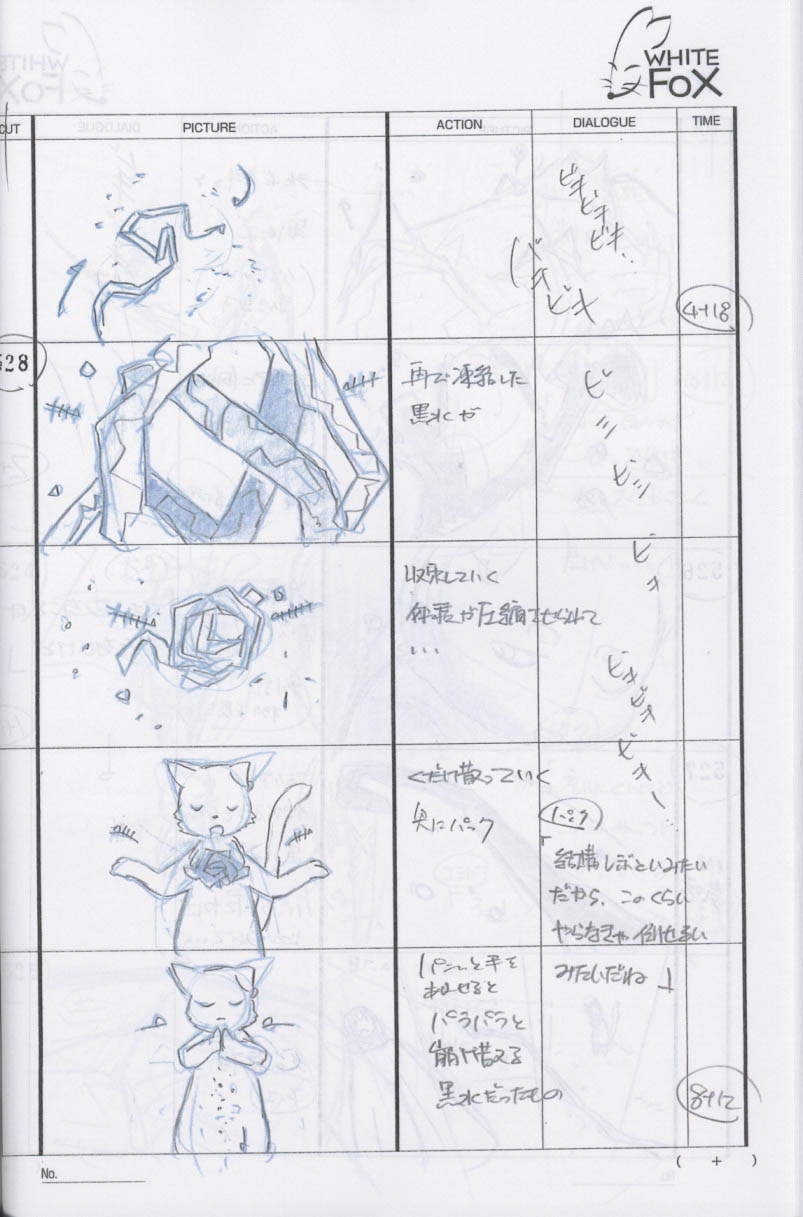 WHITE
FOX
CUT
PICTURE
ACTION
DIALOGUE
TIME
ビキ
ビキ
ビキ
バキ
ビキ
4+18
528
再び凍結した
黒水が
収束していく
・・・
くだけ散っていく
奥にパック
パック
「結構しぶといみたい
だから、このくらい
やらなきゃ倒せない
みたいだね」
パンッと手を
あわせると
パラパラと
崩け散る
黒水だったもの
8+12
( + )
No.